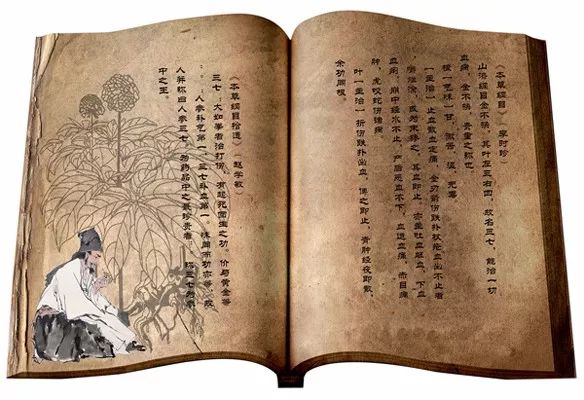 《本草纲目》 李时珍
山漆纲目金不换，其叶左三右四，故名三七，能治一切
血病，金不换，贵重之称也
根（气味）甘、微苦、温、无毒
（主治）止血散血定痛，金刃箭伤跌扑杖疮血出不止者
嚼烂涂，或为末掺之，其血即止，亦主吐血衄血，下血
血痢，崩中经水不止，产后恶血不下，血运血痛，赤目痈
肿，虎咬蛇伤诸病
叶（主治）折伤跌扑出血，傅之即止，青肿经夜即散，
余功同根。
《本草纲目拾遗》 赵学敏
三七：大如拳者治打伤，有起死回生之功。价与黄金等
……人参补气第一，三七补血第一，味同而功亦等，故
人并称曰人参三七，为药品中之最珍贵者。 称三七为药
中之王。